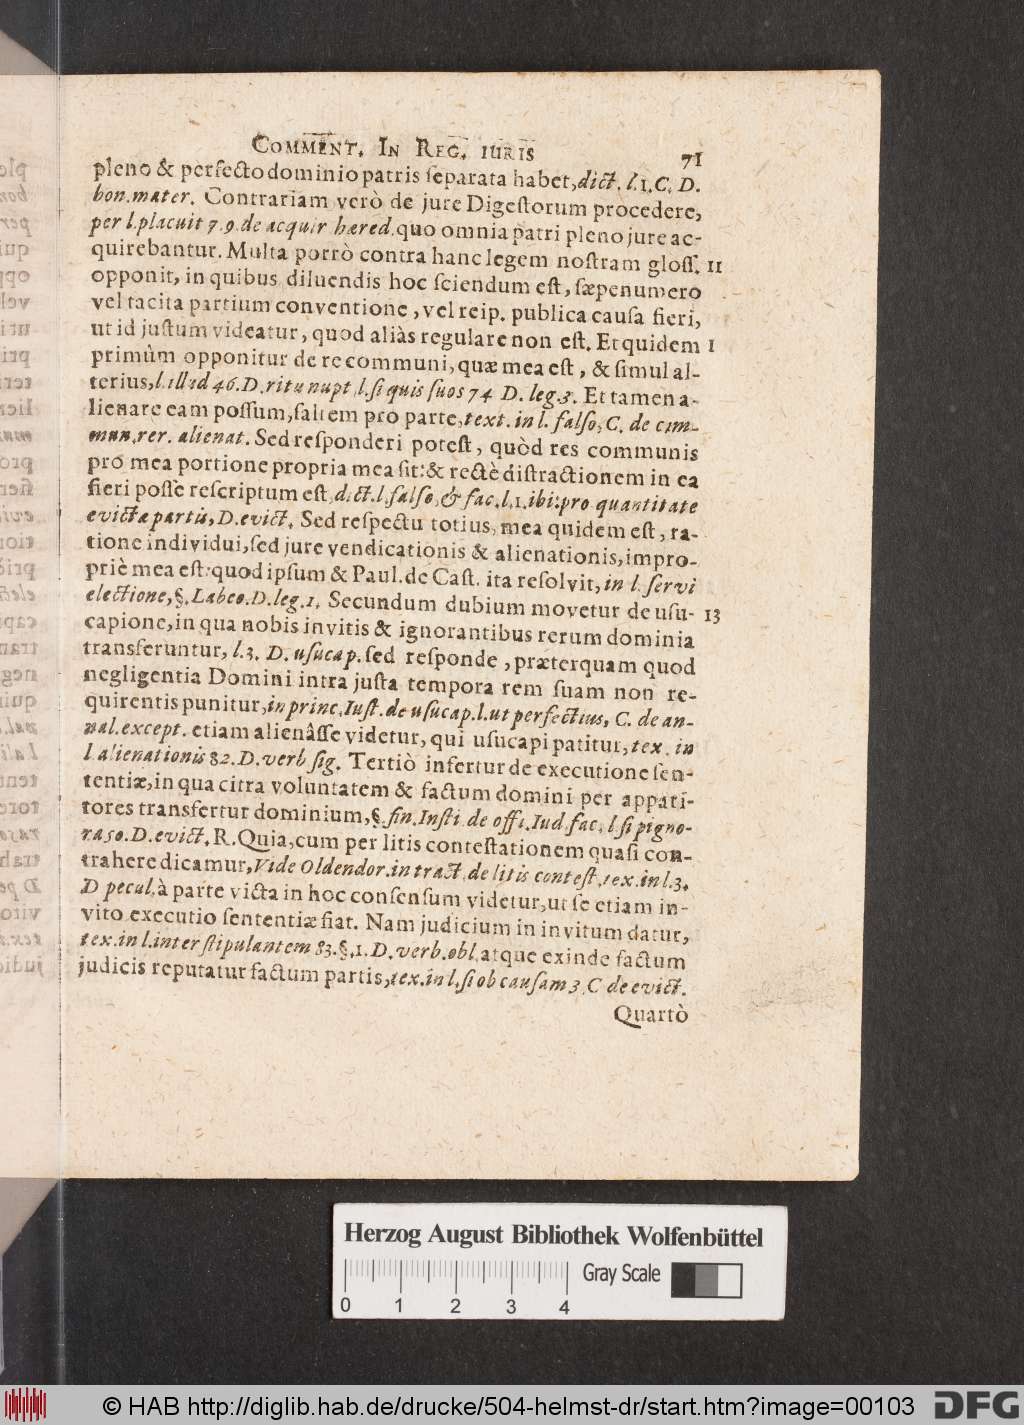 COMMENT. IN REG. IURIS 71
pleno & perfecto dominio patris ſeparata habet, dict. l.1. C. D.
bon. mater. Contrariam verò de jure Digeſtorum procedere,
per l. placuit 79. de acquir hæred. quo omnia patri pleno jure ac-
quirebantur. Multa porrò contra hanc legem noſtram gloſſ. 11
opponit, in quibus diluendis hoc ſciendum eſt, ſæpenumero
vel tacita partium conventione, vel reip. publica cauſa fieri,
ut id juſtum videatur, quod aliàs regulare non eſt. Et quidem 1
primùm opponitur de re communi, quæ mea eſt, & ſimul al-
terius, l. illud 46. D. ritu nupt. l. ſi quis ſuos 74 D. leg. 3. Et tamen a-
lienare eam poſſum, ſaltem pro parte, text. in l. falſo, C. de com-
mun. rer. alienat. Sed reſponderi poteſt, quòd res communis
pro mea portione propria mea ſit: & rectè diſtractionem in ea
fieri poſſe reſcriptum eſt dict. l. falſo, & fac. l. 1. ibi: pro quantitate
evictæ partis, D. evict. Sed reſpectu totius, mea quidem eſt, ra-
tione individui, ſed jure vendicationis & alienationis, impro-
priè mea eſt: quod ipſum & Paul. de Caſt. ita reſolvit, in l. ſervi
electione, §. Labeo. D. leg. 1. Secundum dubium movetur de uſu- 13
capione, in qua nobis invitis & ignorantibus rerum dominia
transferuntur, l. 3. D. uſucap. ſed reſponde, præterquam quod
negligentia Domini intra juſta tempora rem ſuam non re-
quirentis punitur, in princ. Iuſt. de uſucap. l. ut perfectius, C. de an-
nal. except. etiam alienâſſe videtur, qui uſucapi patitur, tex. in
l alienationis 82. D. verb ſig. Tertiò infertur de executione ſen-
tentiæ, in qua citra voluntatem & factum domini per appari-
tores transfertur dominium, §. fin. Inſti de offi. Iud fac. l. ſi pigno-
ra 50. D. evict. R. Quia, cum per litis conteſtationem quaſi con-
trahere dicamur, Vide Oldendor. in tract. de litis conteſt. tex. in l. 3.
D pecul. à parte victa in hoc conſenſum videtur, ut ſe etiam in-
vito executio ſententiæ fiat. Nam judicium in invitum datur,
tex. in l. inter ſtipulantem 83. §. 1. D. verb. obl. atque exinde factum
judicis reputatur factum partis, tex. in l. ſi ob cauſam 3. C de evict.
Quartò
Herzog August Bibliothek Wolfenbüttel
Gray Scale
0 1 2 3 4
© HAB http://diglib.hab.de/drucke/504-helmst-dr/start.htm?image=00103 DFG